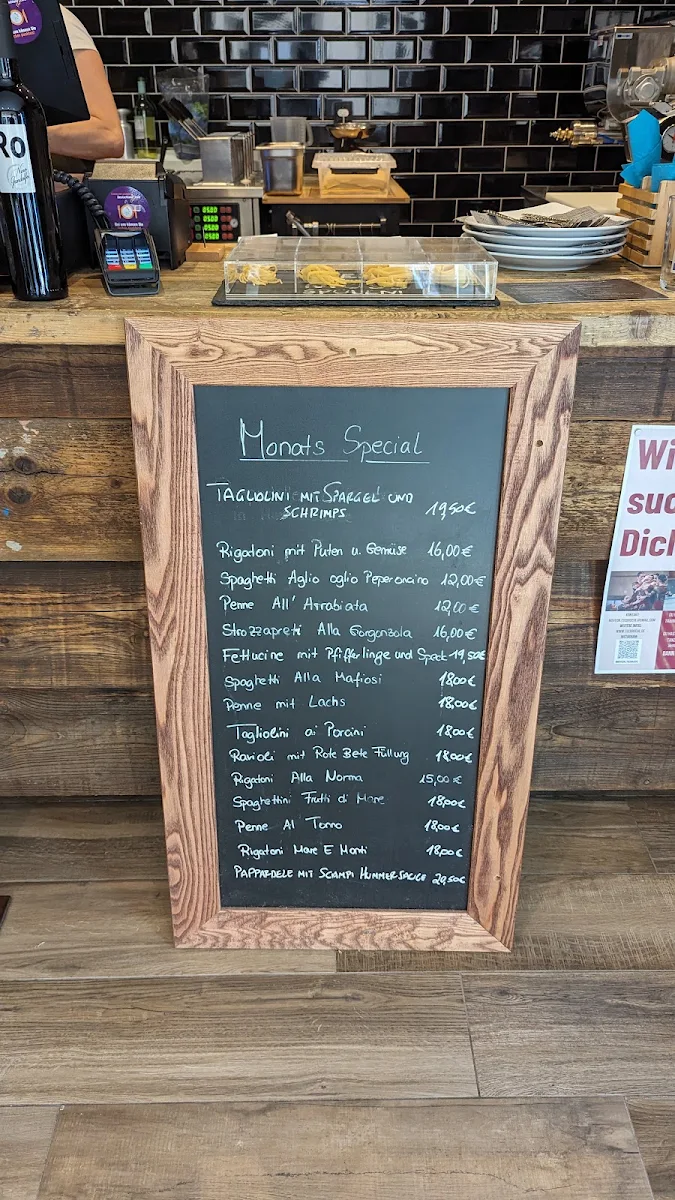 Ro
Monats Special
TAGLIOLINI MIT SPARGEL UND
SCHRIMPS 19,50€
Rigatoni mit Puten u. Gemüse 16,00€
Spaghetti Aglio oglio Peperoncino 12,00€
Penne All' Arrabiata 12,00€
Strozzapreti Alla Gorgonzola 16,00€
Fettucine mit Pfifferlinge und Speck 19,50€
Spaghetti Alla Mafiosi 18,00€
Penne mit Lachs 18,00€
Tagliolini ai Porcini 18,00€
Ravioli mit Rote Bete Füllung 18,00€
Rigatoni Alla Norma 15,00€
Spaghettini Frutti di Mare 18,00€
Penne Al Tonno 18,00€
Rigatoni Mare E Monti 18,00€
PAPPARDELE MIT SCAMPI HUMMERSAUCE 29,50€
Wi
suc
Dich